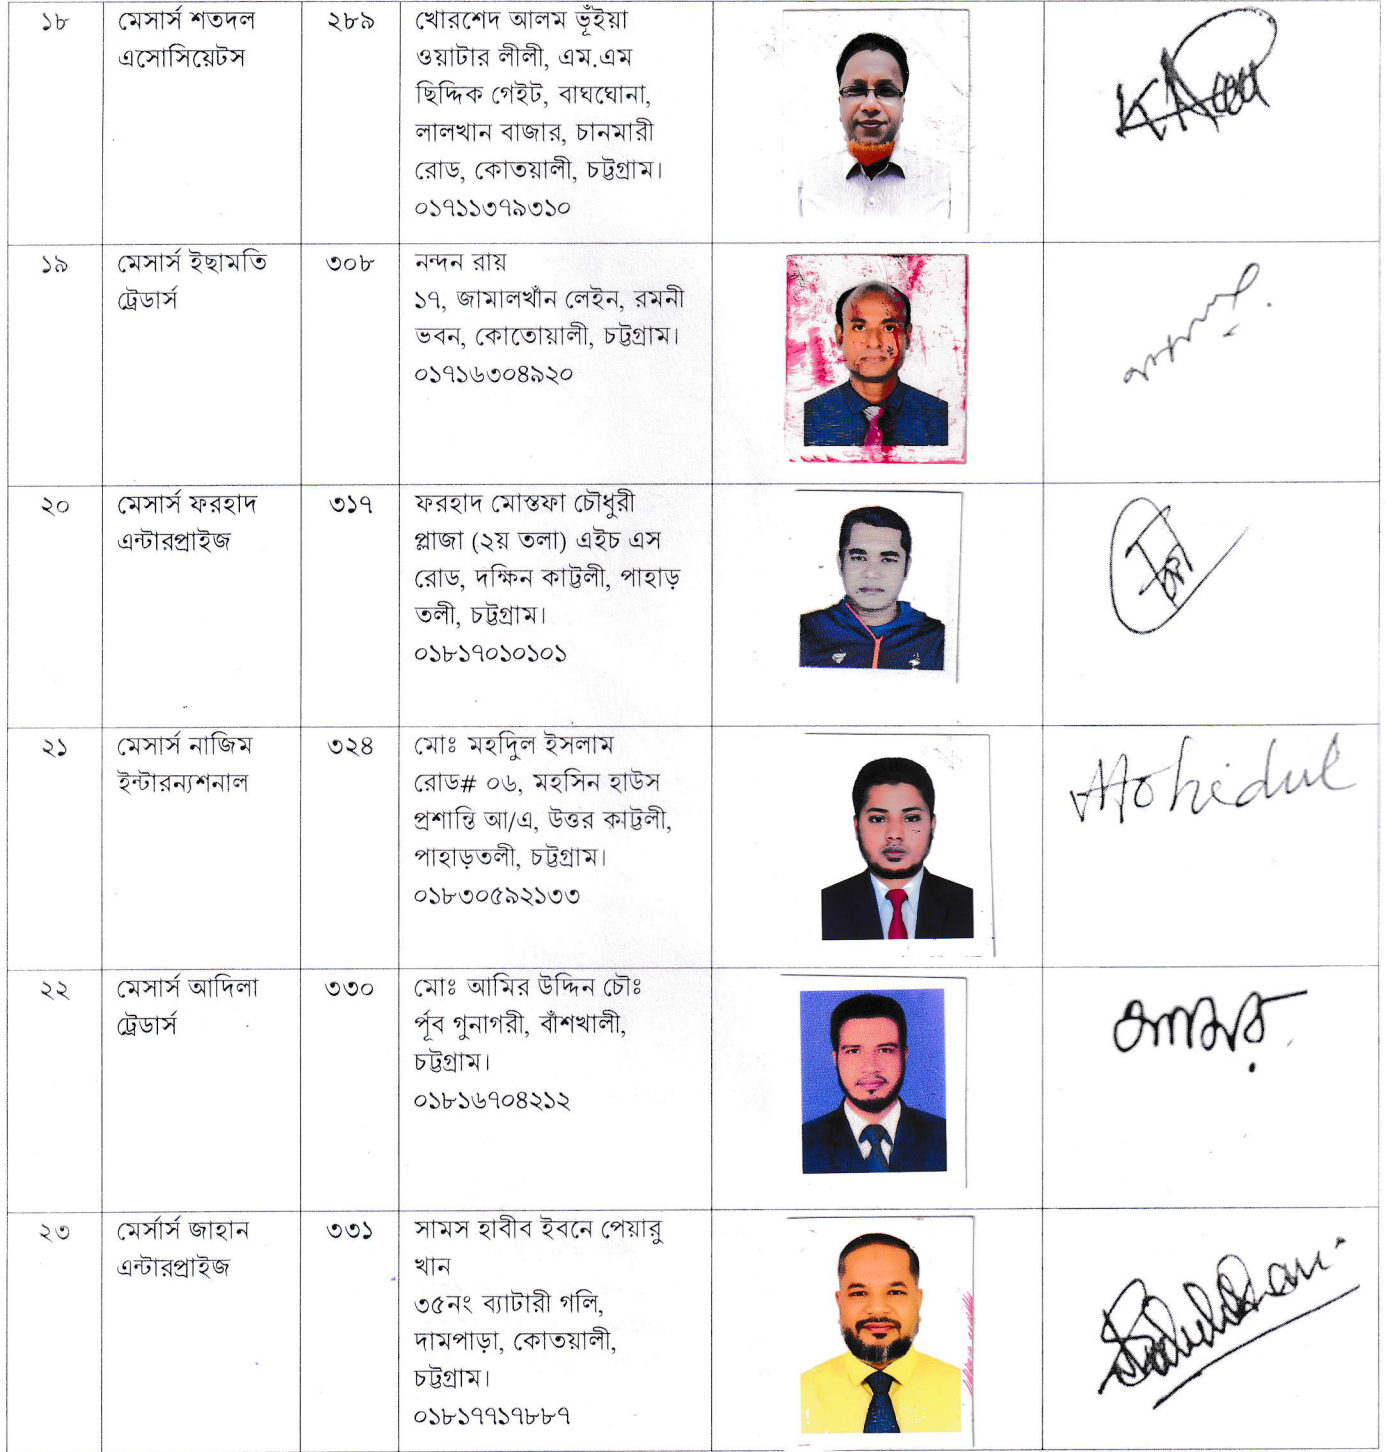 ১৮
মেসার্স শতদল
এসোসিয়েটস
২৮৯
খোরশেদ আলম ভূঁইয়া
ওয়াটার লীলী, এম.এম
ছিদ্দিক গেইট, বাঘঘোনা,
লালখান বাজার, চানমারী
রোড, কোতয়ালী, চট্টগ্রাম।
০১৭১১৩৭৯৩১০
১৯
মেসার্স ইছামতি
ট্রেডার্স
৩০৮
নন্দন রায়
১৭, জামালখাঁন লেইন, রমনী
ভবন, কোতোয়ালী, চট্টগ্রাম।
০১৭১৬৩০৪৯২০
২০
মেসার্স ফরহাদ
এন্টারপ্রাইজ
৩১৭
ফরহাদ মোস্তফা চৌধুরী
প্লাজা (২য় তলা) এইচ এস
রোড, দক্ষিন কাট্টলী, পাহাড়
তলী, চট্টগ্রাম।
০১৮১৭০১০১০১
২১
মেসার্স নাজিম
ইন্টারন্যশনাল
৩২৪
মোঃ মহিদুল ইসলাম
রোড# ০৬, মহসিন হাউস
প্রশান্তি আ/এ, উত্তর কাট্টলী,
পাহাড়তলী, চট্টগ্রাম।
০১৮৩০৫৯২১৩৩
Mohidul
২২
মেসার্স আদিলা
ট্রেডার্স
৩৩০
মোঃ আমির উদ্দিন চৌঃ
র্পূব গুনাগরী, বাঁশখালী,
চট্টগ্রাম।
০১৮১৬৭০৪২১২
২৩
মের্সার্স জাহান
এন্টারপ্রাইজ
৩৩১
সামস হাবীব ইবনে পেয়ারু
খান
৩৫নং ব্যাটারী গলি,
দামপাড়া, কোতয়ালী,
চট্টগ্রাম।
০১৮১৭৭১৭৮৮৭